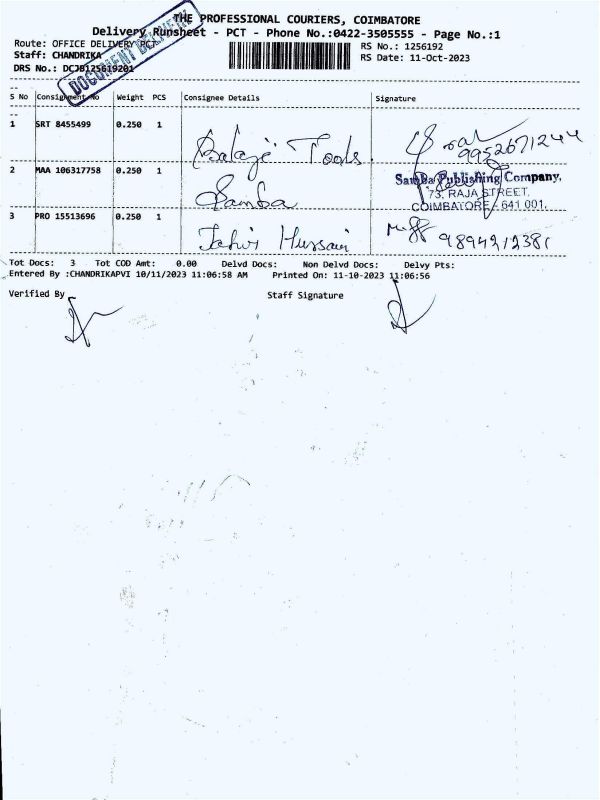 THE PROFESSIONAL COURIERS, COIMBATORE
Delivery Runsheet - PCT - Phone No.:0422-3505555 - Page No.:1
Route: OFFICE DELIVERY PCT
RS No.: 1256192
Staff: CHANDRIKA
RS Date: 11-Oct-2023
DRS No.: DCJB125619201
DOCUMENT DELIVERY
S No Consignment No Weight PCS Consignee Details Signature
1 SRT 8455499 0.250 1
Balaji Tools 9952671244
2 MAA 106317758 0.250 1
Samba
Samba Publishing Company,
73, RAJA STREET,
COIMBATORE - 641 001.
3 PRO 15513696 0.250 1
Hussain 9894212381
Tot Docs: 3 Tot COD Amt: 0.00 Delvd Docs: Non Delvd Docs: Delvy Pts:
Entered By :CHANDRIKAPVI 10/11/2023 11:06:58 AM Printed On: 11-10-2023 11:06:56
Verified By Staff Signature